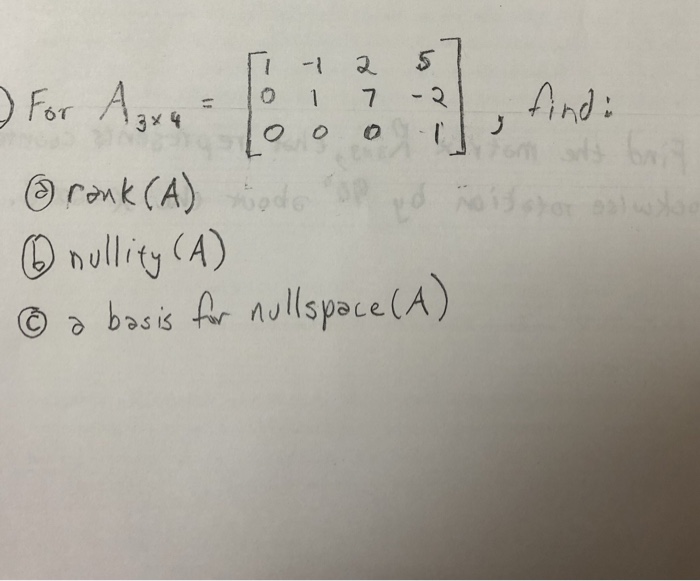 ) For A3x4 = [1 -1 2 5
0 1 7 -2
0 0 0 1], find:
ⓐ rank(A)
ⓑ nullity (A)
ⓒ a basis for nullspace(A)